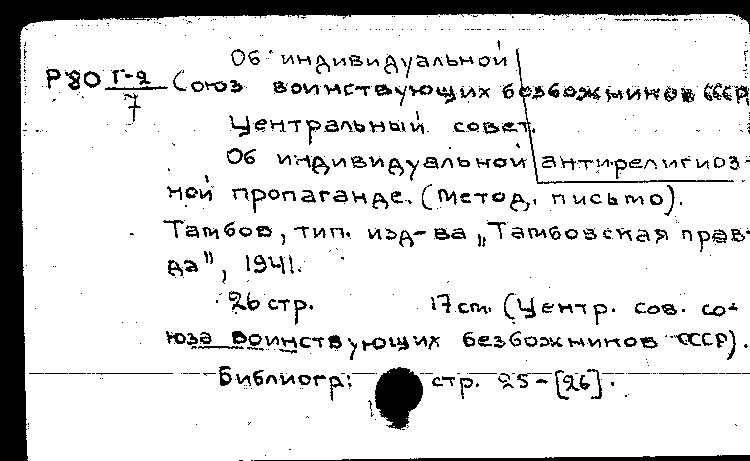 Об индивидуальной
Р80 Г-2/7 Союз воинствующих безбожников СССР
Центральный совет.
Об индивидуальной антирелигиоз-
ной пропаганде. (Метод. письмо).
Тамбов, тип. изд-ва „Тамбовская прав-
да", 1941.
26 стр. 17 см. (Центр. сов. со-
юза воинствующих безбожников СССР).
Библиогр: стр. 25-[26].